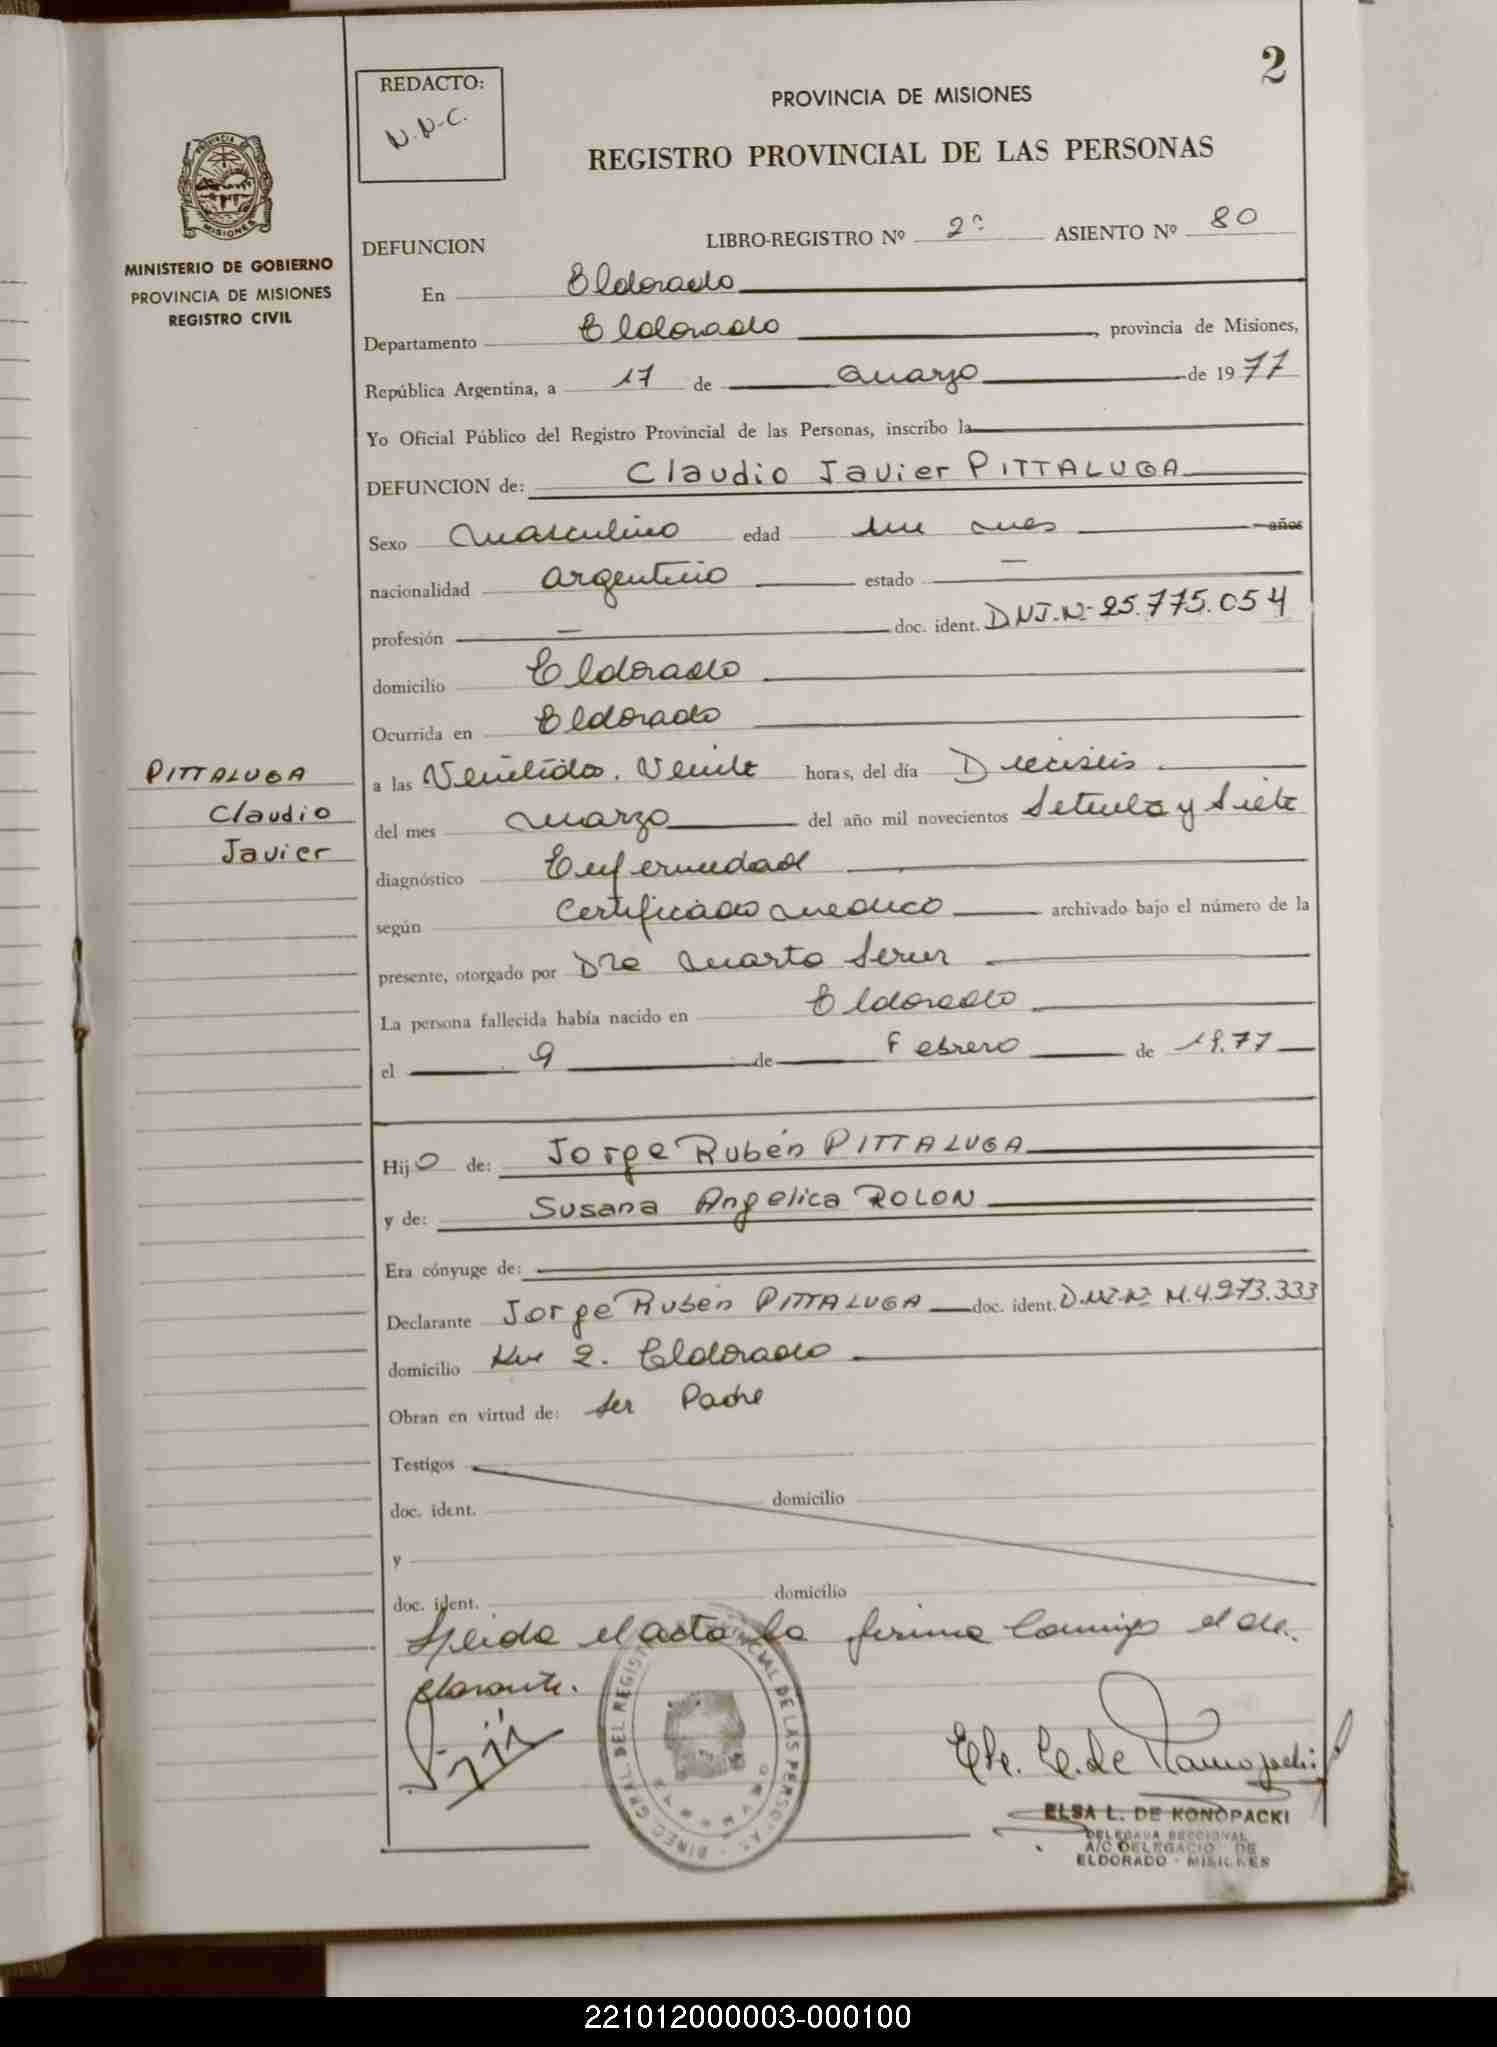 2
REDACTO:
N.N.C.
PROVINCIA DE MISIONES
REGISTRO PROVINCIAL DE LAS PERSONAS
MINISTERIO DE GOBIERNO
PROVINCIA DE MISIONES
REGISTRO CIVIL
DEFUNCION LIBRO-REGISTRO Nº 2º ASIENTO Nº 80
En Eldorado
Departamento Eldorado, provincia de Misiones,
República Argentina, a 17 de Marzo de 1977
Yo Oficial Público del Registro Provincial de las Personas, inscribo la
DEFUNCION de: Claudio Javier PITTALUGA
Sexo Masculino edad un mes años
nacionalidad argentino estado —
profesión — doc. ident. DNI.Nº 25.775.054
domicilio Eldorado
Ocurrida en Eldorado
PITTALUGA
Claudio
Javier
a las Veintidos. Veinte horas, del día Dieciseis
del mes Marzo del año mil novecientos Setenta y Siete
diagnóstico Enfermedad
según Certificado medico archivado bajo el número de la
presente, otorgado por Dra Marta
La persona fallecida había nacido en Eldorado
el 9 de Febrero de 19.77
Hijo de: Jorge Rubén PITTALUGA
y de: Susana Angelica ROLON
Era cónyuge de:
Declarante Jorge Rubén PITTALUGA doc. ident. D.NI.Nº M.4.973.333
domicilio Km 2. Eldorado
Obran en virtud de: ser Padre
Testigos
doc. ident. domicilio
y
doc. ident. domicilio
leida el acta la firma conmigo el de-
clarante.
DIREC. GRAL. DEL REGISTRO PROVINCIAL DE LAS PERSONAS
ELSA L. DE KONOPACKI
DELEGADA SECCIONAL
A/C DELEGACIO DE
ELDORADO - MISIONES
221012000003-000100